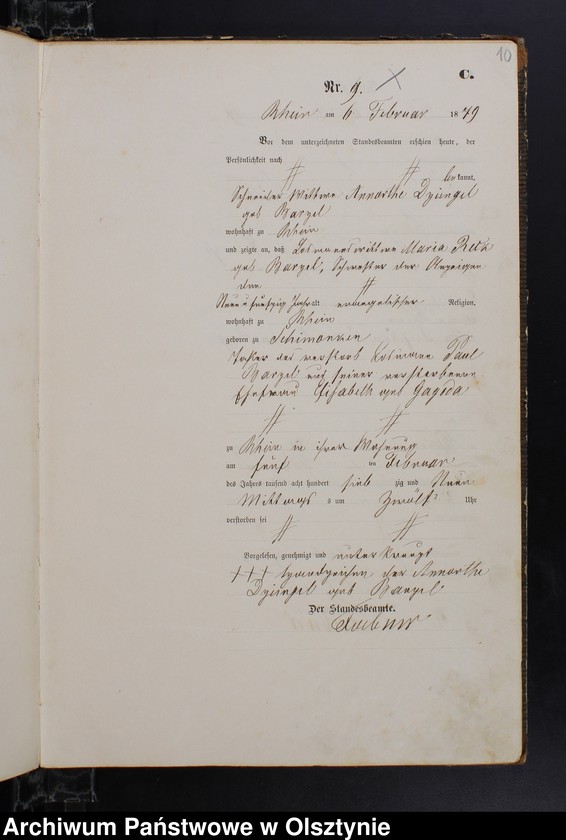 10
C.
Nr. 9.
Rhein am 6 Februar 1879
Vor dem unterzeichneten Standesbeamten erschien heute, der
Persönlichkeit nach
be kannt,
Schneider Wittwe Annorthe
geb Bargel
wohnhaft zu Rhein
und zeigte an, daß Losmannswittwe Maria
geb Bargel, Schwester der Anzeigen
den
Neun u fünfzig Jahr alt evangelischer Religion,
wohnhaft zu Rhein
geboren zu Schimonken
Tochter des verstorb Losmann Paul
Bargel und seiner verstorbenen
Ehefrau Elisabeth geb Gayda
zu Rhein in ihrer Wohnung
am fünf ten Februar
des Jahres tausend acht hundert sieb zig und Neun
Mittags s um Zwölf Uhr
verstorben sei
Vorgelesen, genehmigt und unterkreuzt
+++ Handzeichen der Annorthe
geb Bargel
Der Standesbeamte.
Archiwum Państwowe w Olsztynie